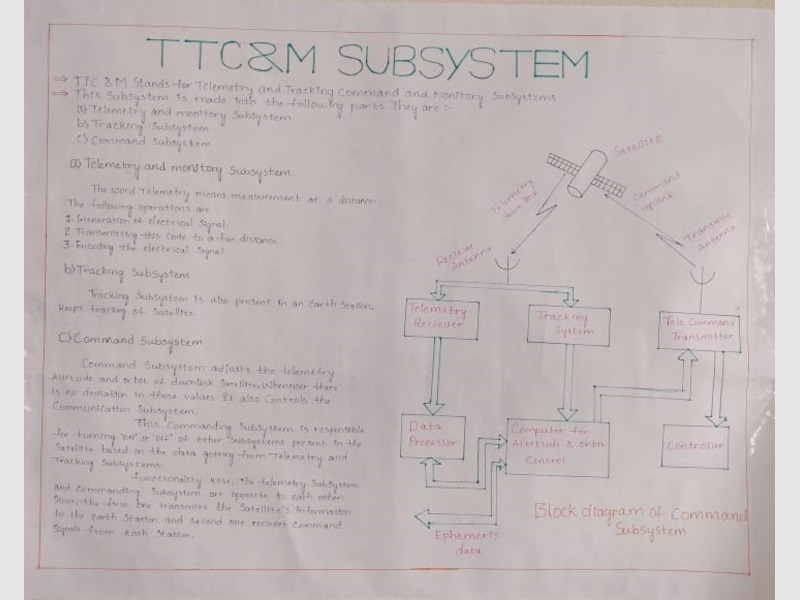 TTC&M SUBSYSTEM
⇒ TTC & M Stands for Telemetry and Tracking Command and Monitory Subsystems
⇒ This Subsystem is made into the following parts. They are :-
a) Telemetry and monitory Subsystem
b) Tracking Subsystem
c) Command Subsystem
a) Telemetry and monitory Subsystem
The word Telemetry means measurement at a distance.
The following operations are
1. Generation of electrical Signal.
2. Transmitting this Code to a far distance.
3. Encoding the electrical Signal
b) Tracking Subsystem
Tracking Subsystem is also present in an earth Station,
keeps tracking of Satellite.
C) Command Subsystem
Command Subsystem adjusts the telemetry
Altitude and orbit of downlink Satellite. Whenever there
is no deviation in those values It also Controls the
Communication Subsystem.
This Commanding Subsystem is responsible
for turning 'ON' or 'OFF' of other Subsystems present in the
Satellite based on the data getting from Telemetry and
Tracking Subsystems.
functionality wise, the telemetry Subsystem
and Commanding Subsystem are opposite to each other.
Since, the first one transmits the Satellite's Information
to the earth Station and second one recieves Command
Signals from each Station.
Satellite
Telemetry
down link
Command
Uplink
Transmit
Antenna
Recieve
Antenna
Telemetry
Reciever
Tracking
System
Tele Command
Transmitter
Data
Processor
Computer for
Altitude & orbit
Control
Controllur
Ephemeris
data
Block diagram of Command
Subsystem